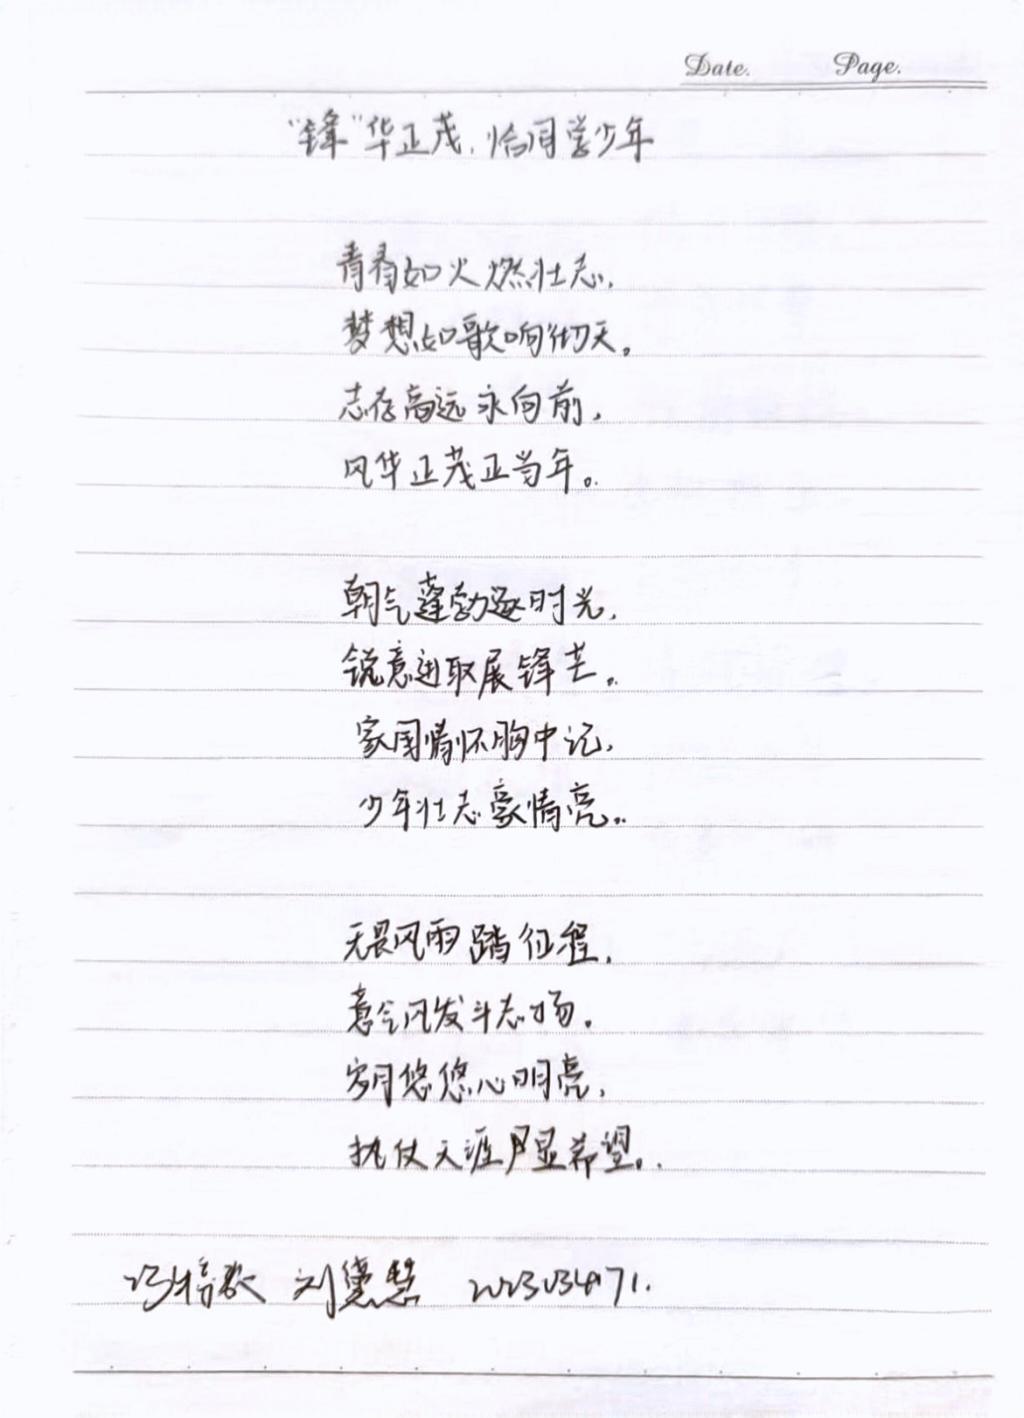 Date. Page.
"锋"华正茂，恰同学少年
青春如火燃壮志，
梦想如歌响彻天。
志存高远永向前，
风华正茂正当年。
朝气蓬勃逐时光，
锐意进取展锋芒。
家国情怀胸中记，
少年壮志豪情亮。
无畏风雨踏征程，
意气风发斗志扬。
岁月悠悠心明亮，
执仗天涯显希望。
刘 慧 2023034171.